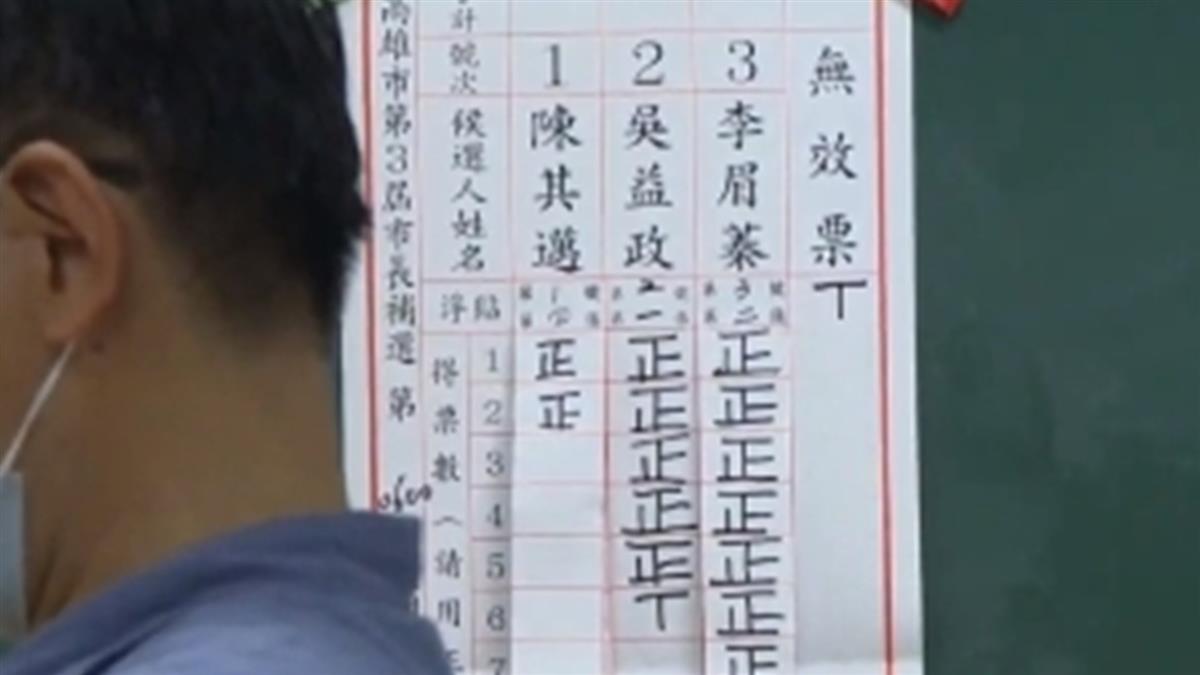 高雄市第3屆市長補選 第
計
號次
候選人姓名
浮貼
得票數(請用正
1
2
3
4
5
6
7
1
陳其邁
正
正
2
吳益政
正
正
正
正
正
丅
3
李眉蓁
正
正
正
正
正
正
正
無效票
丅